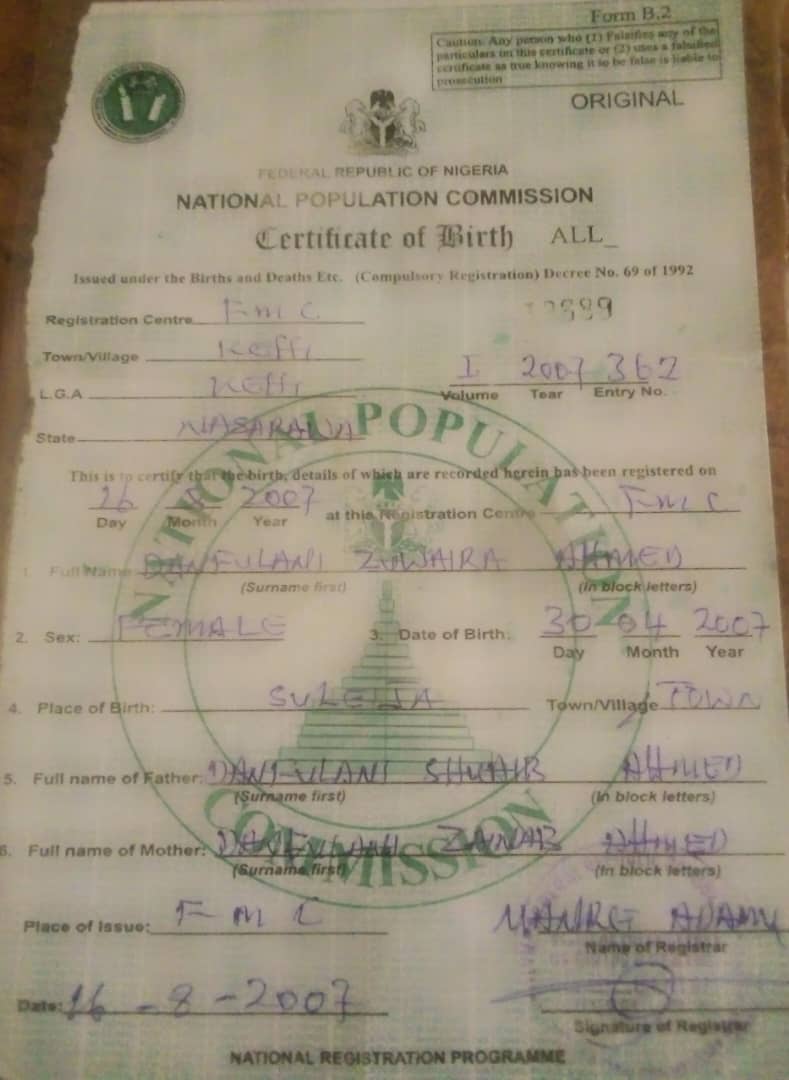 Form B.2
Caution: Any person who (1) Falsifies any of the
particulars on this certificate or (2) uses a falsified
certificate as true knowing it to be false is liable to
prosecution
ORIGINAL
FEDERAL REPUBLIC OF NIGERIA
NATIONAL POPULATION COMMISSION
Certificate of Birth ALL_
Issued under the Births and Deaths Etc. (Compulsory Registration) Decree No. 69 of 1992
Registration Centre F M C
Town/Village Keffi
I 2007 362
L.G.A Keffi
Volume Tear Entry No.
State NASARAWA
NATIONAL POPULATION COMMISSION
This is to certify that the birth, details of which are recorded herein has been registered on
16 8 2007 at this Registration Centre F M C
Day Month Year
1. Full Name DANFULANI ZUWAIRA AHMED
(Surname first) (In block letters)
2. Sex: FEMALE 3. Date of Birth: 30 04 2007
Day Month Year
4. Place of Birth: SULEJA Town/Village TOWN
5. Full name of Father: DANFULANI SHUAIB AHMED
(Surname first) (In block letters)
6. Full name of Mother: DANFULANI ZAINAB AHMED
(Surname first) (In block letters)
Place of Issue: F M C ADAMU
Name of Registrar
Date: 16 - 8 - 2007
Signature of Registrar
NATIONAL REGISTRATION PROGRAMME